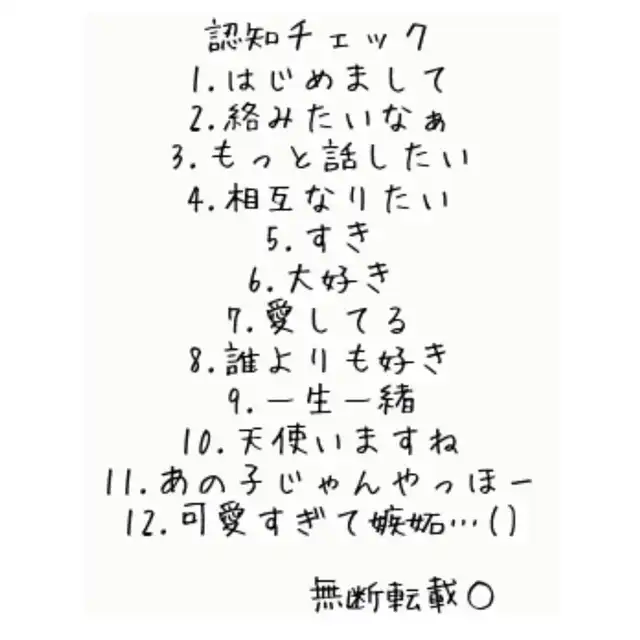 認知チェック
1.はじめまして
2.絡みたいなぁ
3.もっと話したい
4.相互なりたい
5.すき
6.大好き
7.愛してる
8.誰よりも好き
9.一生一緒
10.天使いますね
11.あの子じゃんやっほー
12.可愛すぎて嫉妬…()
無断転載〇